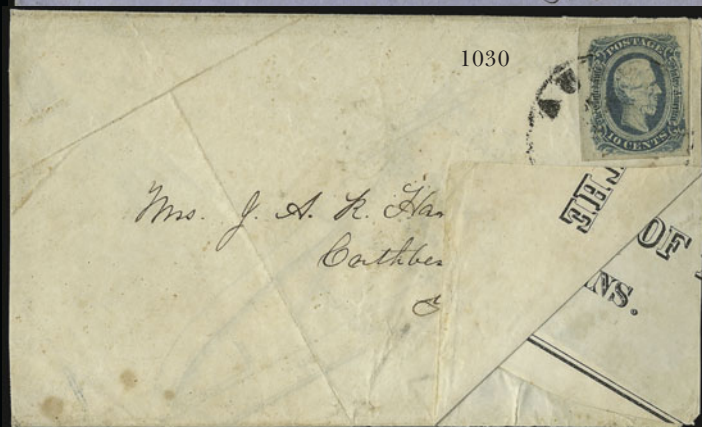 1030
POSTAGE
10 CENTS
Mrs. J. A. K. Har
Cuthber
OF
NS.